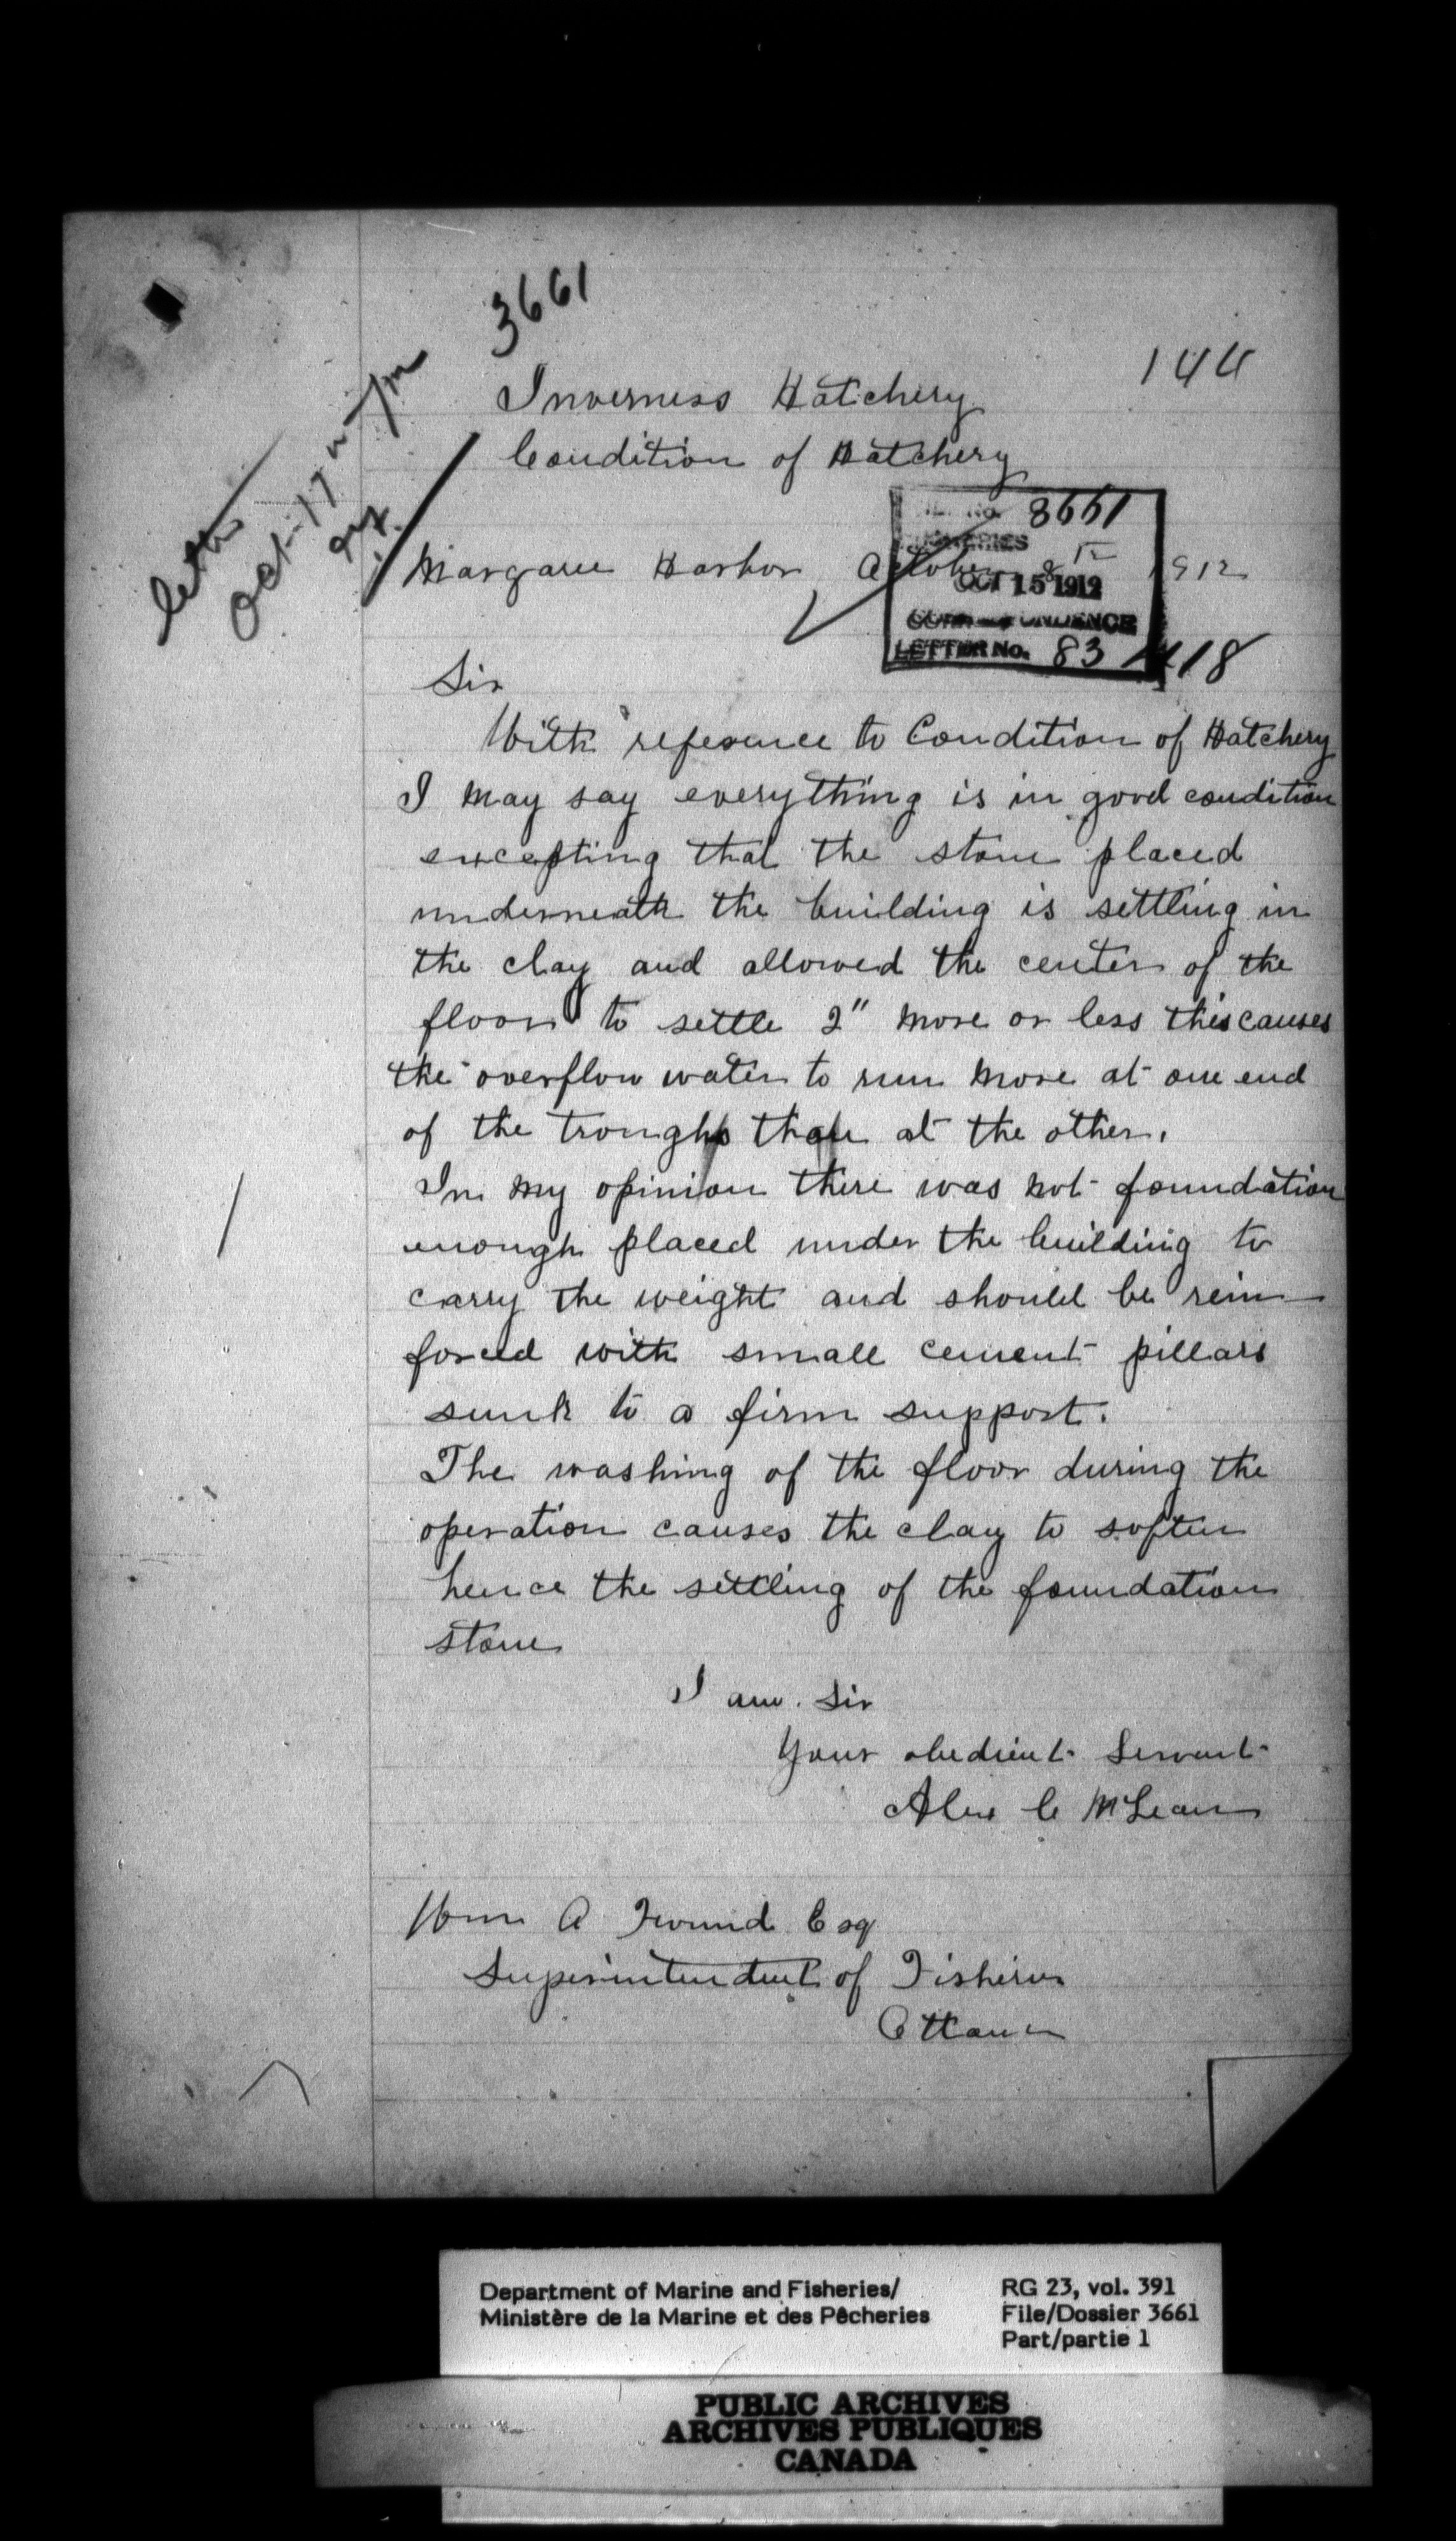 3661
144
Inverness Hatchery
Condition of Hatchery
letter
Oct-17
No. 3661
FISHERIES
Margaree Harbor October 8 1912
OCT 15 1912
CORRESPONDENCE
LETTER No. 83418
Sir
With reference to Condition of Hatchery
I may say everything is in good condition
excepting that the stone placed
underneath the building is settling in
the clay and allowed the center of the
floor to settle 2" more or less this causes
the overflow water to run more at one end
of the troughs than at the other.
In my opinion there was not foundation
enough placed under the building to
carry the weight and should be rein-
forced with small cement pillars
sunk to a firm support.
The washing of the floor during the
operation causes the clay to soften
hence the settling of the foundation
stone
I am. Sir
Your obedient Servant
Alex C McLean
Wm A Found Esq
Superintendent of Fisheries
Ottawa
Department of Marine and Fisheries/
Ministère de la Marine et des Pêcheries
RG 23, vol. 391
File/Dossier 3661
Part/partie 1
PUBLIC ARCHIVES
ARCHIVES PUBLIQUES
CANADA